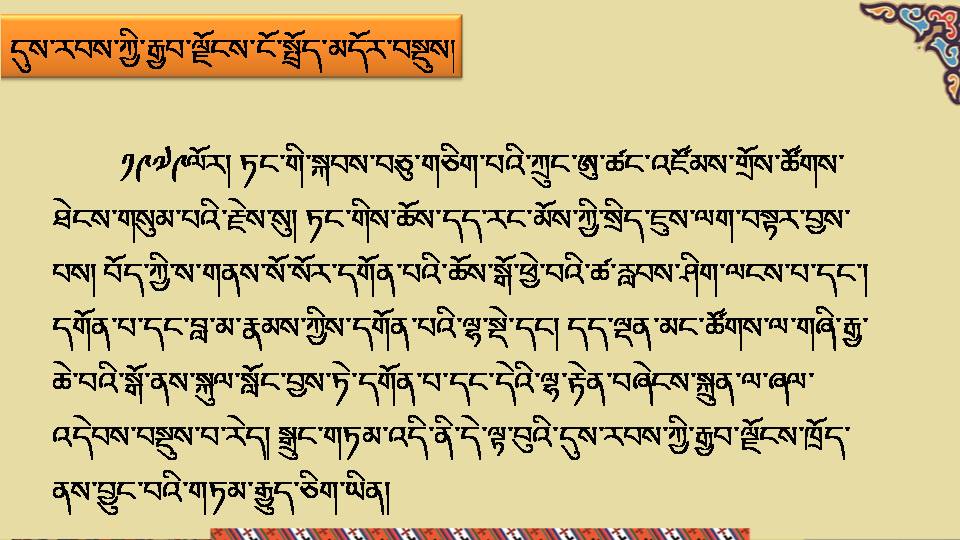 དུས་རབས་ཀྱི་རྒྱབ་ལྗོངས་ངོ་སྤྲོད་མདོར་བསྡུས།
༡༩༧༩ལོར། ཏང་གི་སྐབས་བཅུ་གཅིག་པའི་ཀྲུང་ཨུ་ཚང་འཛོམས་གྲོས་ཚོགས་
ཐེངས་གསུམ་པའི་རྗེས་སུ། ཏང་གིས་ཆོས་དད་རང་མོས་ཀྱི་སྲིད་ཇུས་ལག་བསྟར་བྱས་
པས། བོད་ཀྱི་ས་གནས་སོ་སོར་དགོན་པའི་ཆོས་སྒོ་ཕྱེ་བའི་ཚ་རླབས་ཤིག་ལངས་པ་དང་།
དགོན་པ་དང་བླ་མ་རྣམས་ཀྱིས་དགོན་པའི་ལྷ་སྡེ་དང། དད་ལྡན་མང་ཚོགས་ལ་གཞི་རྒྱ་
ཆེ་བའི་སྒོ་ནས་སྐུལ་སློང་བྱས་ཏེ་དགོན་པ་དང་དེའི་ལྷ་རྟེན་བཞེངས་སྐྲུན་ལ་ཞལ་
འདེབས་བསྡུས་བ་རེད། སྒྲུང་གཏམ་འདི་ནི་དེ་ལྟ་བུའི་དུས་རབས་ཀྱི་རྒྱབ་ལྗོངས་ཁྲོད་
ནས་བྱུང་བའི་གཏམ་རྒྱུད་ཅིག་ཡིན།